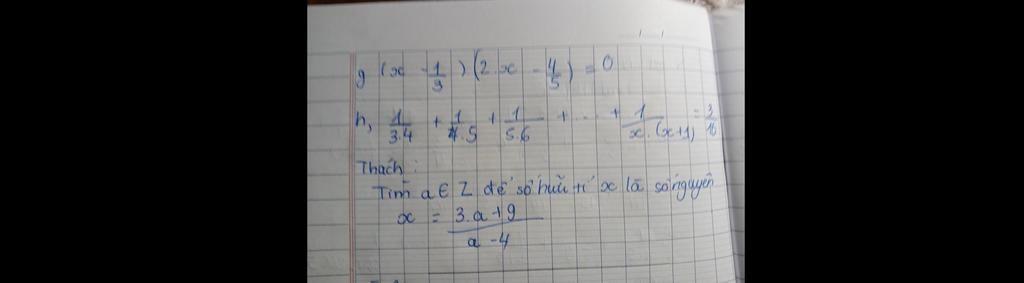 g (x - 1/3) (2.x - 4/5) = 0
h, 1/3.4 + 1/4.5 + 1/5.6 + ... + 1/x.(x+1) = 3/16
Thách :
Tìm a ∈ Z để số hữu tỉ x là số nguyên
x = 3.a+9/a-4